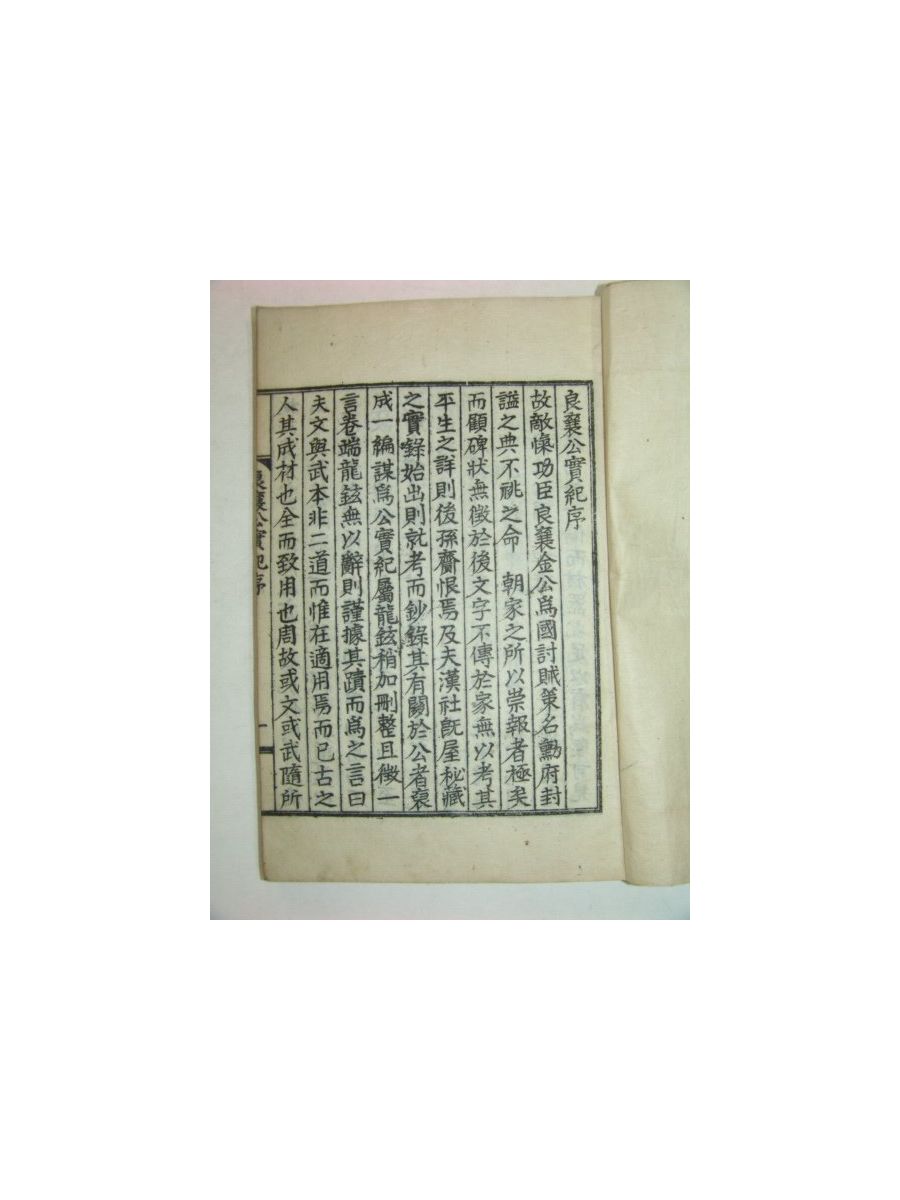 良襄公實紀序
故敵愾功臣良襄金公爲國討賊策名勳府封
謚之典不祧之命　朝家之所以崇報者極矣
而顧碑狀無徵於後文字不傳於家無以考其
平生之詳則後孫齎恨焉及夫漢社旣屋秘藏
之實錄始出則就考而鈔錄其有關於公者裒
成一編謀爲公實紀屬龍鉉稍加刪整且徵一
言卷端龍鉉無以辭則謹據其蹟而爲之言曰
夫文與武本非二道而惟在適用焉而已古之
人其成材也全而致用也周故或文或武隨所
良襄公實紀序
一